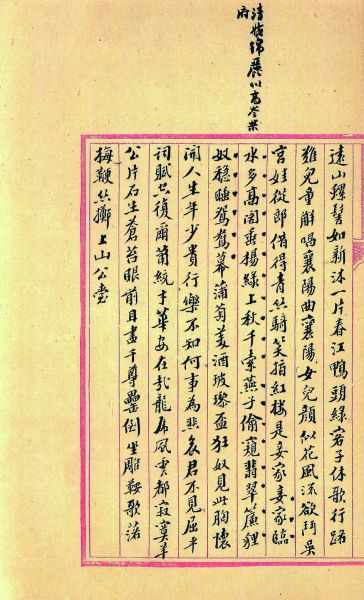 清婉綿麗似高岑樂
府
遠山螺髻如新沐一片春江鴨頭綠宕子休歌行路
難兒童解唱襄陽曲襄陽女兒顏似花風流欲鬥吳
宮娃從郎借得青絲騎笑指紅樓是妾家妾家臨
水多高閣垂楊綠上秋千索燕子偷窺翡翠簾貍
奴穩睡鴛鴦幕蒲萄美酒玻瓈盃狂奴見此胸懷
開人生年少貴行樂不知何事為悲哀君不見屈平
詞賦空復爾蕭統才華安在哉龍虎風雲都寂寞羊
公片石生蒼苔眼前且盡千尊罍倒坐雕鞍歌落
梅鞭絲擲上山公臺